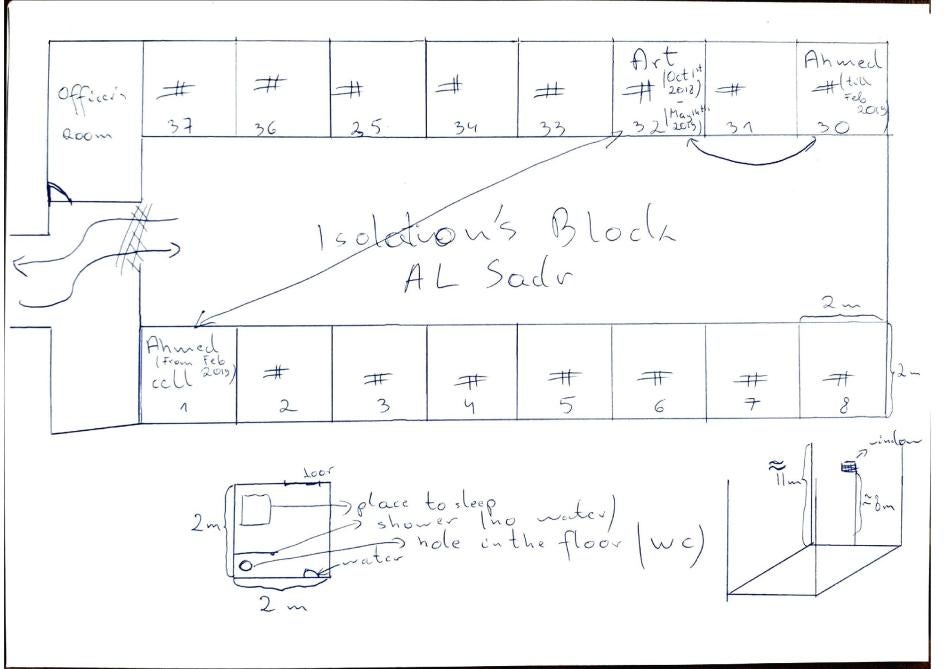 Officer's
Room
#
37
#
36
#
35
#
34
#
33
Art
(Oct 1st
2018)
-
(May
2019)
#
32
#
31
Ahmed
# (till
Feb
2019)
30
Isolation's Block
AL Sadr
2 m
2 m
Ahmed
(From Feb
2019)
cell
1
#
2
#
3
#
4
#
5
#
6
#
7
#
8
door
place to sleep
shower (no water)
hole in the floor (WC)
water
2 m
2 m
window
≈
11m
≈8m